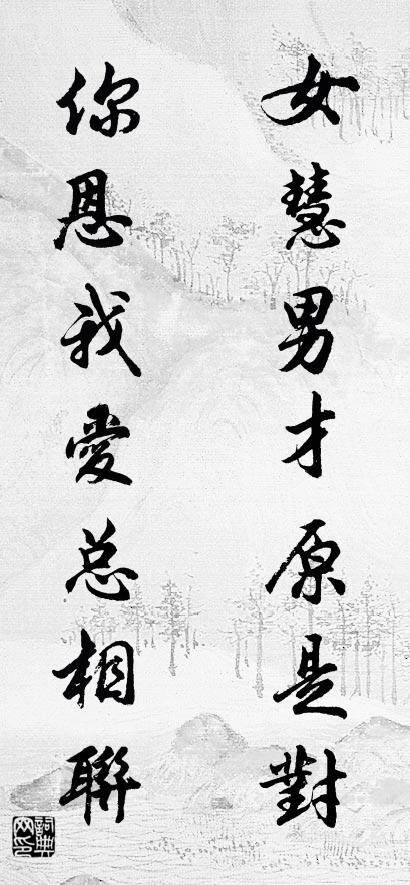 女慧男才原是對
你恩我愛总相聯
詞典网印